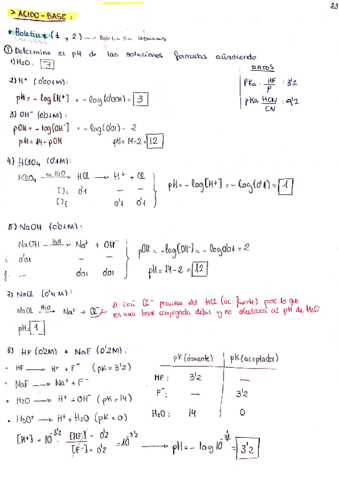 23
> ACIDO-BASE:
* Boletines (1, 2)
① Determine el pH de las soluciones formadas añadiendo
DATOS
1) H2O. 7
PKa HF/F : 3'2
PKa HCN/CN : 9'2
2) H+ (0'001M):
pH = - log [H+] = - log (0'001) = 3
3) OH- (0'01M):
pOH = - log [OH-] = - log (0'01) = 2
pH = 14 - pOH pH = 14-2 = 12
4) HClO4 (0'1M):
HClO4 —H2O→ HCl → H+ + Cl-
[ ]i 0'1 — —
[ ]f 0'1 0'1
pH = - log [H+] = - log (0'1) = 1
5) NaOH (0'01M):
NaOH —H2O→ Na+ + OH-
i 0'01 — —
f — 0'01 0'01
pOH = - log [OH-] = - log 0'01 = 2
pH = 14 - 2 = 12
7) NaCl (0'4M):
NaCl —H2O→ Na+ + Cl-
El ión Cl- proviene del HCl (ac. fuerte) por lo que
es una base conjugada débil y no afectará al pH de H2O
pH = 7
8) HF (0'2M) + NaF (0'2M):
· HF → H+ + F- (pK = 3'2)
· NaF → Na+ + F-
· H2O → H+ + OH- (pK = 14)
· H3O+ → H+ + H2O (pK = 0)
pK (donante) pK (aceptador)
HF: 3'2 —
F-: — 3'2
H2O: 14 0
[H+] = 10^-3'2 [HF] = 0'2 / [F-] = 0'2 = 10^-3'2 → pH = - log 10^-3'2 = 3'2